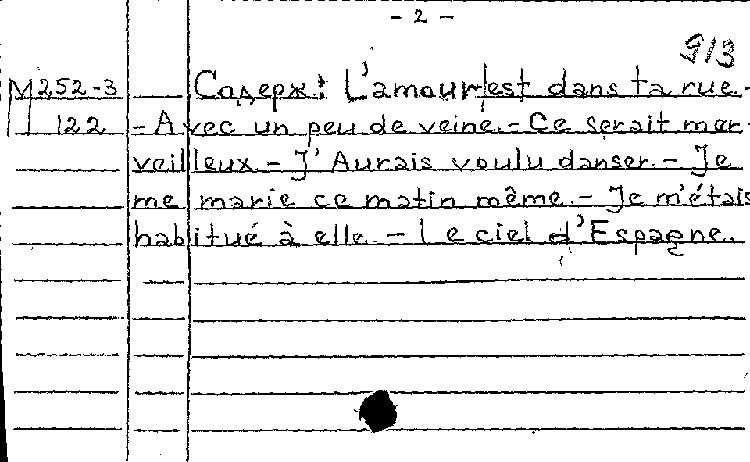 - 2 -
9/3
М252-3 Содерж: L'amour est dans ta rue.-
122 - Avec un peu de veine. - Ce serait mer-
veilleux - J'Aurais voulu danser. - Je
me marie ce matin même. - Je m'étais
habitué à elle. - Le ciel d'Espagne.